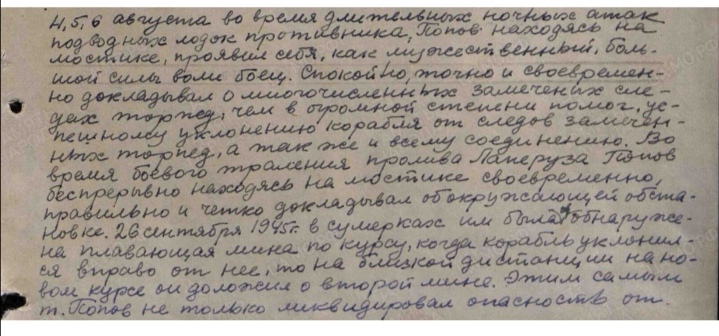 4, 5, 6 августа во время длительных ночных атак
подводных лодок противника, Попов находясь на
мостике, проявил себя, как мужественный, боль-
шой силы воли боец. Спокойно, точно и своевремен-
но докладывал о многочисленных замеченых сле-
дах торпед, чем в огромной степени помог, ус-
пешному уклонению корабля от следов замечен-
ных торпед, а так же и всему соединению. Во
время боевого траления пролива Лаперуза Попов
беспрерывно находясь на мостике своевременно,
правильно и четко докладывал об окружающей обста-
новке. 26 сентября 1945г. в сумерках им была обнаруже-
на плавающая мина по курсу, когда корабль уклонил-
ся вправо от нее, то на близкой дистанции на но-
вом курсе он доложил о второй мине. Этим самым
т. Попов не только ликвидировал опасность от